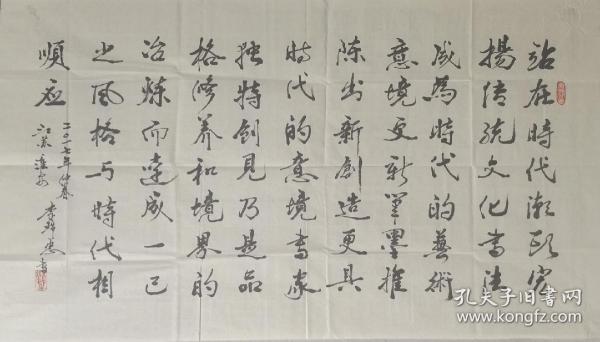 站在時代潮頭
揚传统文化書法
成為時代的藝術
意境更新筆墨推
陈出新創造更具
時代的意境書家
独特創見乃是品
格修养和境界的
冶炼而達成一己
之风格与時代相
順应
二〇一七年仲春
江苏淮安 李
孔夫子旧书网
www.kongfz.com